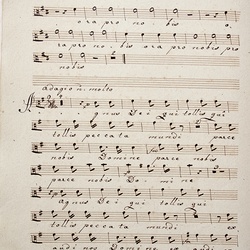 ora pro no bis o
ra pro no bis ora pro nobis pro
nobis
adagio n: molto
Agnus Dei qui tollis qui
tollis peccata mundi parce
nobis Domine parce nobis
parce nobis Do mi ne
agnus Dei qui tollis qui
tollis peccata mundi ex
audi nos Domine